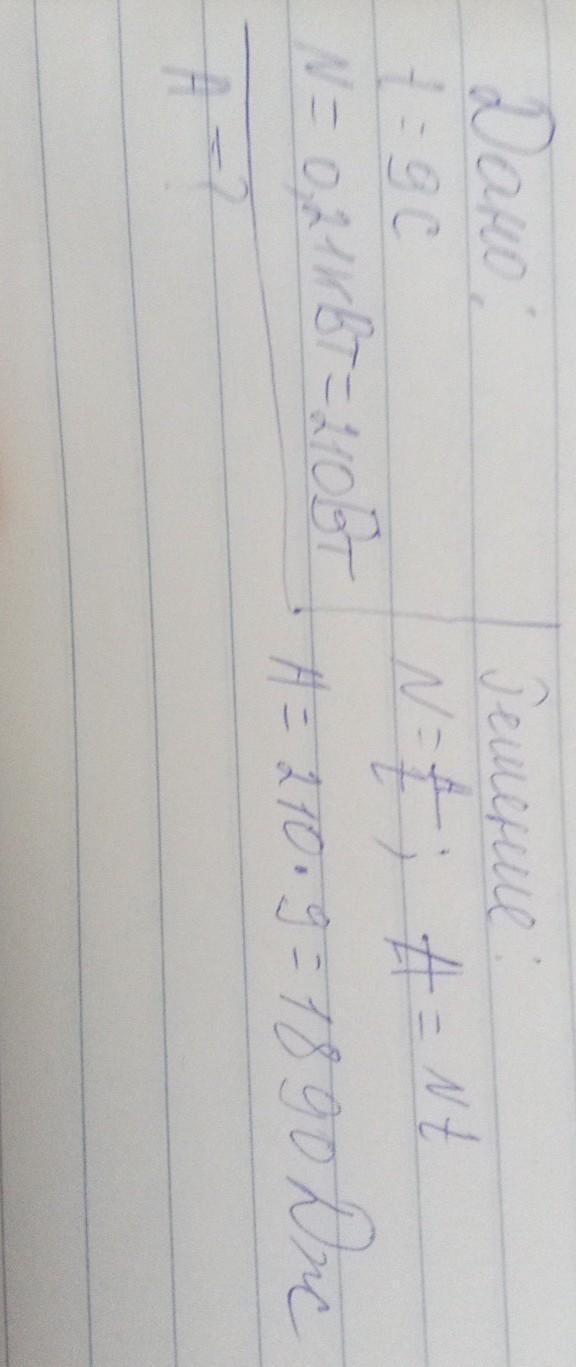 Дано:
t = 9с
N = 0,21кВт = 210Вт
A = ?
Решение:
N = A/t; A = Nt
A = 210 · 9 = 1890 Дж